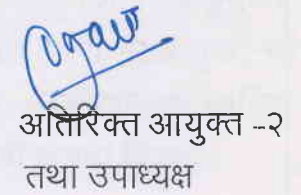 अतिरिक्त आयुक्त -२
तथा उपाध्यक्ष